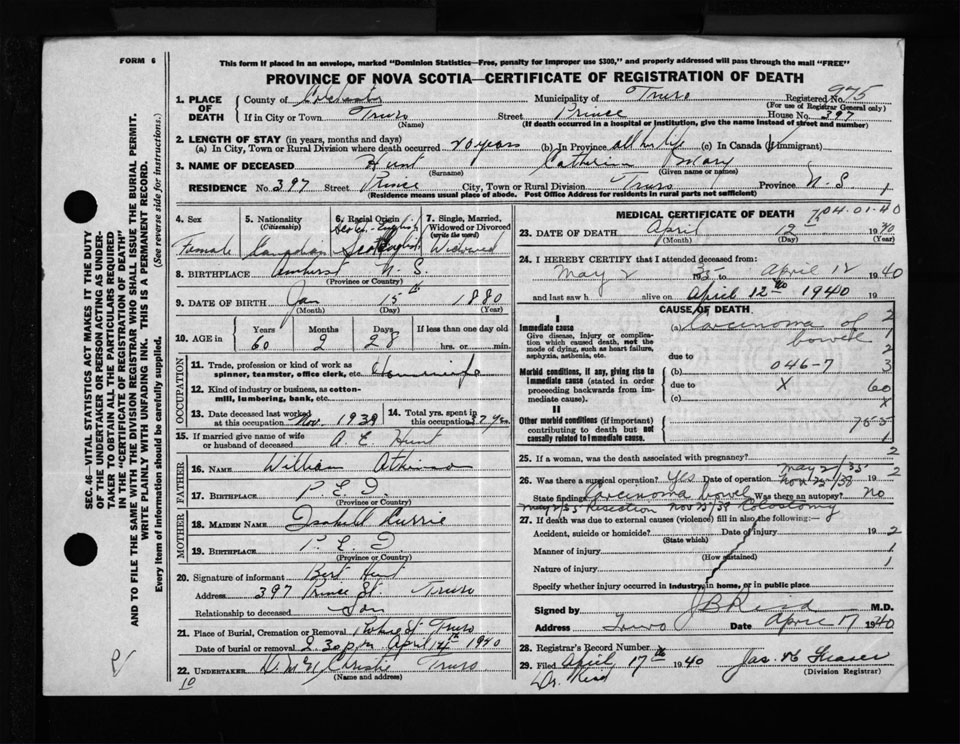 FORM 6
This form if placed in an envelope, marked "Dominion Statistics—Free, penalty for improper use $300," and properly addressed will pass through the mail "FREE"
PROVINCE OF NOVA SCOTIA—CERTIFICATE OF REGISTRATION OF DEATH
SEC. 46—VITAL STATISTICS ACT MAKES IT THE DUTY
OF THE UNDERTAKER OR PERSON ACTING AS UNDER-
TAKER TO OBTAIN ALL THE PARTICULARS REQUIRED
IN THE "CERTIFICATE OF REGISTRATION OF DEATH"
AND TO FILE THE SAME WITH THE DIVISION REGISTRAR WHO SHALL ISSUE THE BURIAL PERMIT.
WRITE PLAINLY WITH UNFADING INK. THIS IS A PERMANENT RECORD.
Every item of information should be carefully supplied. (See reverse side for instructions.)
1. PLACE OF DEATH County of Colchester Municipality of Truro Registered No. 975
(For use of Registrar General only)
If in City or Town Truro Street Prince House No. 397
(Name) (If death occurred in a hospital or institution, give the name instead of street and number)
2. LENGTH OF STAY (in years, months and days)
(a) In City, Town or Rural Division where death occurred 20 years (b) In Province all her life (c) In Canada (if immigrant)
3. NAME OF DECEASED Hunt Catherine Mary
(Surname) (Given name or names)
RESIDENCE No. 397 Street Prince City, Town or Rural Division Truro Province N.S. 1
(Residence means usual place of abode. Post Office Address for residents in rural parts not sufficient)
4. Sex Female
5. Nationality (Citizenship) Canadian
6. Racial Origin Scotch-English
7. Single, Married, Widowed or Divorced (write the word) Widowed
8. BIRTHPLACE Amherst N.S.
(Province or Country)
9. DATE OF BIRTH Jan 15th 1880
(Month) (Day) (Year)
10. AGE in Years 60 Months 2 Days 28 If less than one day old hrs. or min.
OCCUPATION
11. Trade, profession or kind of work as spinner, teamster, office clerk, etc. Housewife
12. Kind of industry or business, as cotton-mill, lumbering, bank, etc.
13. Date deceased last worked at this occupation Nov. 1939
14. Total yrs. spent in this occupation
15. If married give name of wife or husband of deceased A. E. Hunt
FATHER
16. NAME William Atkinson
17. BIRTHPLACE P.E.I.
(Province or Country)
MOTHER
18. MAIDEN NAME Isabell Currie
19. BIRTHPLACE P.E.I.
(Province or Country)
20. Signature of informant Bert Hunt
Address 397 Prince St. Truro
Relationship to deceased Son
21. Place of Burial, Cremation or Removal Truro
Date of burial or removal 2.30 p.m. April 14th 1940
22. UNDERTAKER Christie Truro
(Name and address)
10
MEDICAL CERTIFICATE OF DEATH 04-01-40
23. DATE OF DEATH April 12th 1940
(Month) (Day) (Year)
24. I HEREBY CERTIFY that I attended deceased from:
May 2 1935 to April 12 1940
and last saw h alive on April 12th 1940 19
CAUSE OF DEATH
I
Immediate cause
Give disease, injury or complication which caused death, not the mode of dying, such as heart failure, asphyxia, asthenia, etc.
(a) Carcinoma of bowel 2
due to 2
Morbid conditions, if any, giving rise to immediate cause (stated in order proceeding backwards from immediate cause).
(b) 046-7 3
due to X 60
(c) x
II
Other morbid conditions (if important) contributing to death but not causally related to immediate cause.
1
25. If a woman, was the death associated with pregnancy?
26. Was there a surgical operation? Yes Date of operation May 2/35 Nov 25/38 2
State findings Carcinoma bowel Was there an autopsy? No
May 2/35 Resection Nov 25/38 Colostomy
27. If death was due to external causes (violence) fill in also the following:—
Accident, suicide or homicide? Date of injury 19 2
(State which)
Manner of injury 1
(How sustained)
Nature of injury 1
Specify whether injury occurred in industry, in home, or in public place
Signed by J B Reid M.D.
Address Truro Date April 17 1940
28. Registrar's Record Number
29. Filed April 17th 1940 Jas. Fraser
(Division Registrar)
Dr. Reid